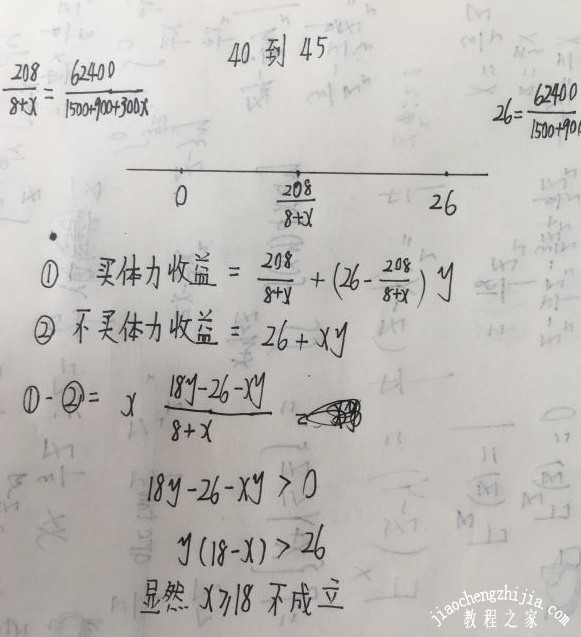 40 到 45
208/(8+x) = 62400/(1500+900+300x)
26 = 62400/(1500+90
0 208/(8+x) 26
① 买体力收益 = 208/(8+y) + (26 - 208/(8+x)) y
② 不买体力收益 = 26 + xy
① - ② = x (18y-26-xy)/(8+x) =
18y-26-xy > 0
y(18-x) > 26
显然 x≥18 不成立
jiaochengzhijia.com
教程之家